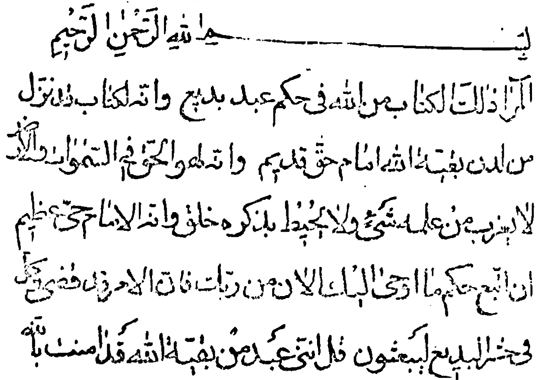 بسم الله الرحمن الرحيم
الم ذلك الكتاب من الله في حكم عبد بديع وانه لكتاب قد نزل
من لدن بقية الله امام حق قديم وانه لهو الحق في السموات والارض
لا يعزب من علمه شئ ولا يحيط بذكره خلق وانه الامام حي عظيم
ان اتبع حكم ما اوحى اليك الان من ربك فان الامر قد قضى وكل
في البديع ليبعثون قل انني عبد من بقية الله قد امنت بالله